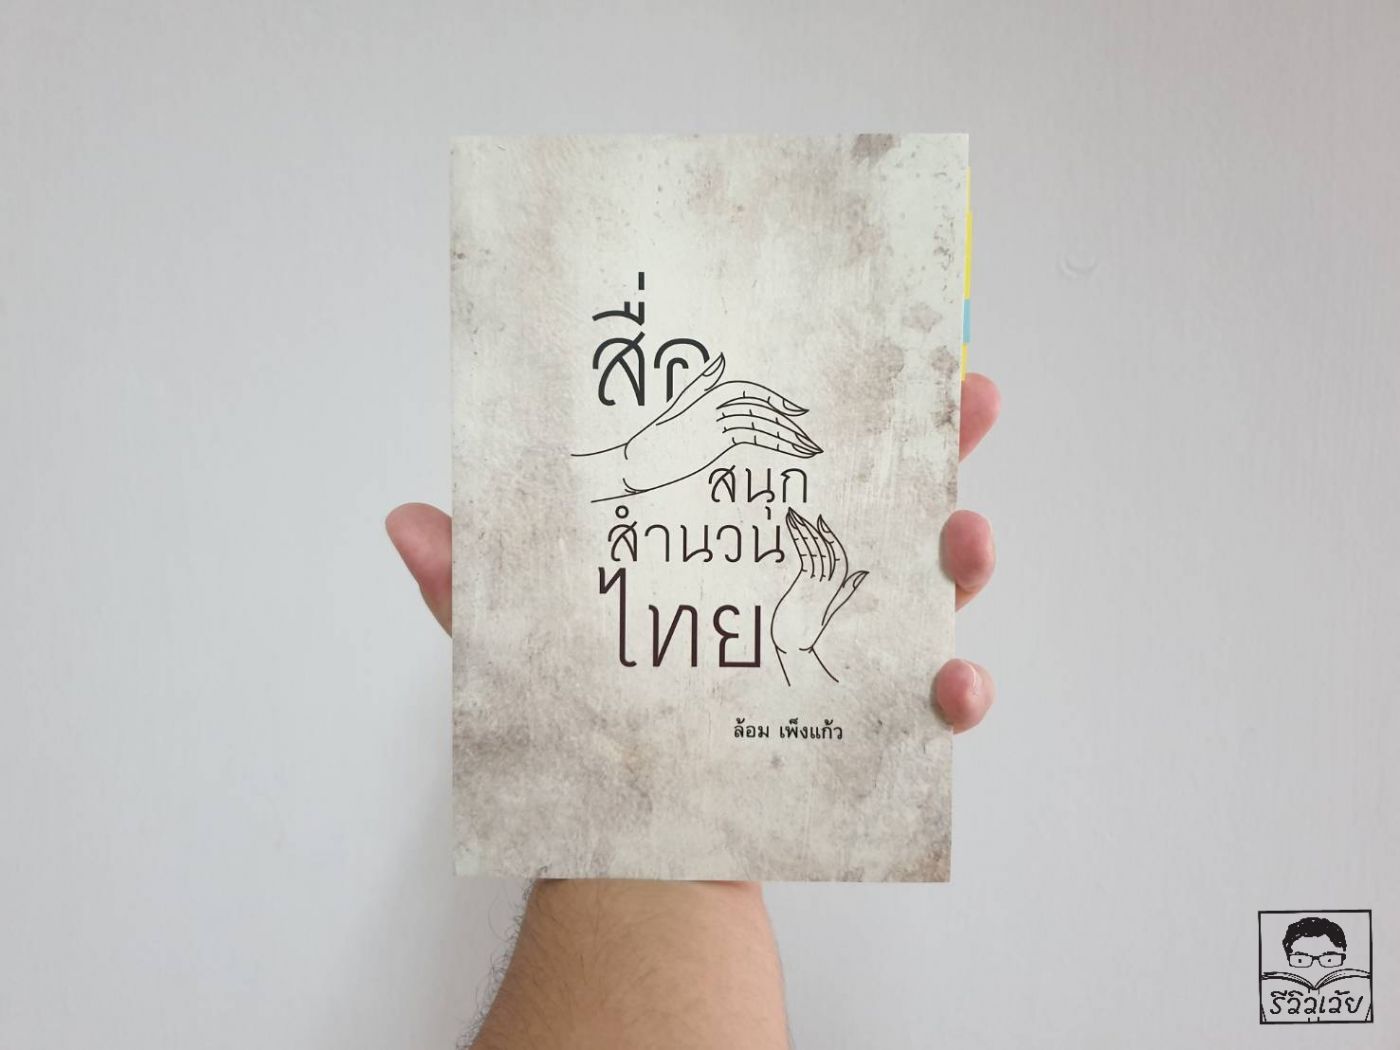 สื่อ
สนุก
สำนวน
ไทย
ล้อม เพ็งแก้ว
รีวิวเว้ย